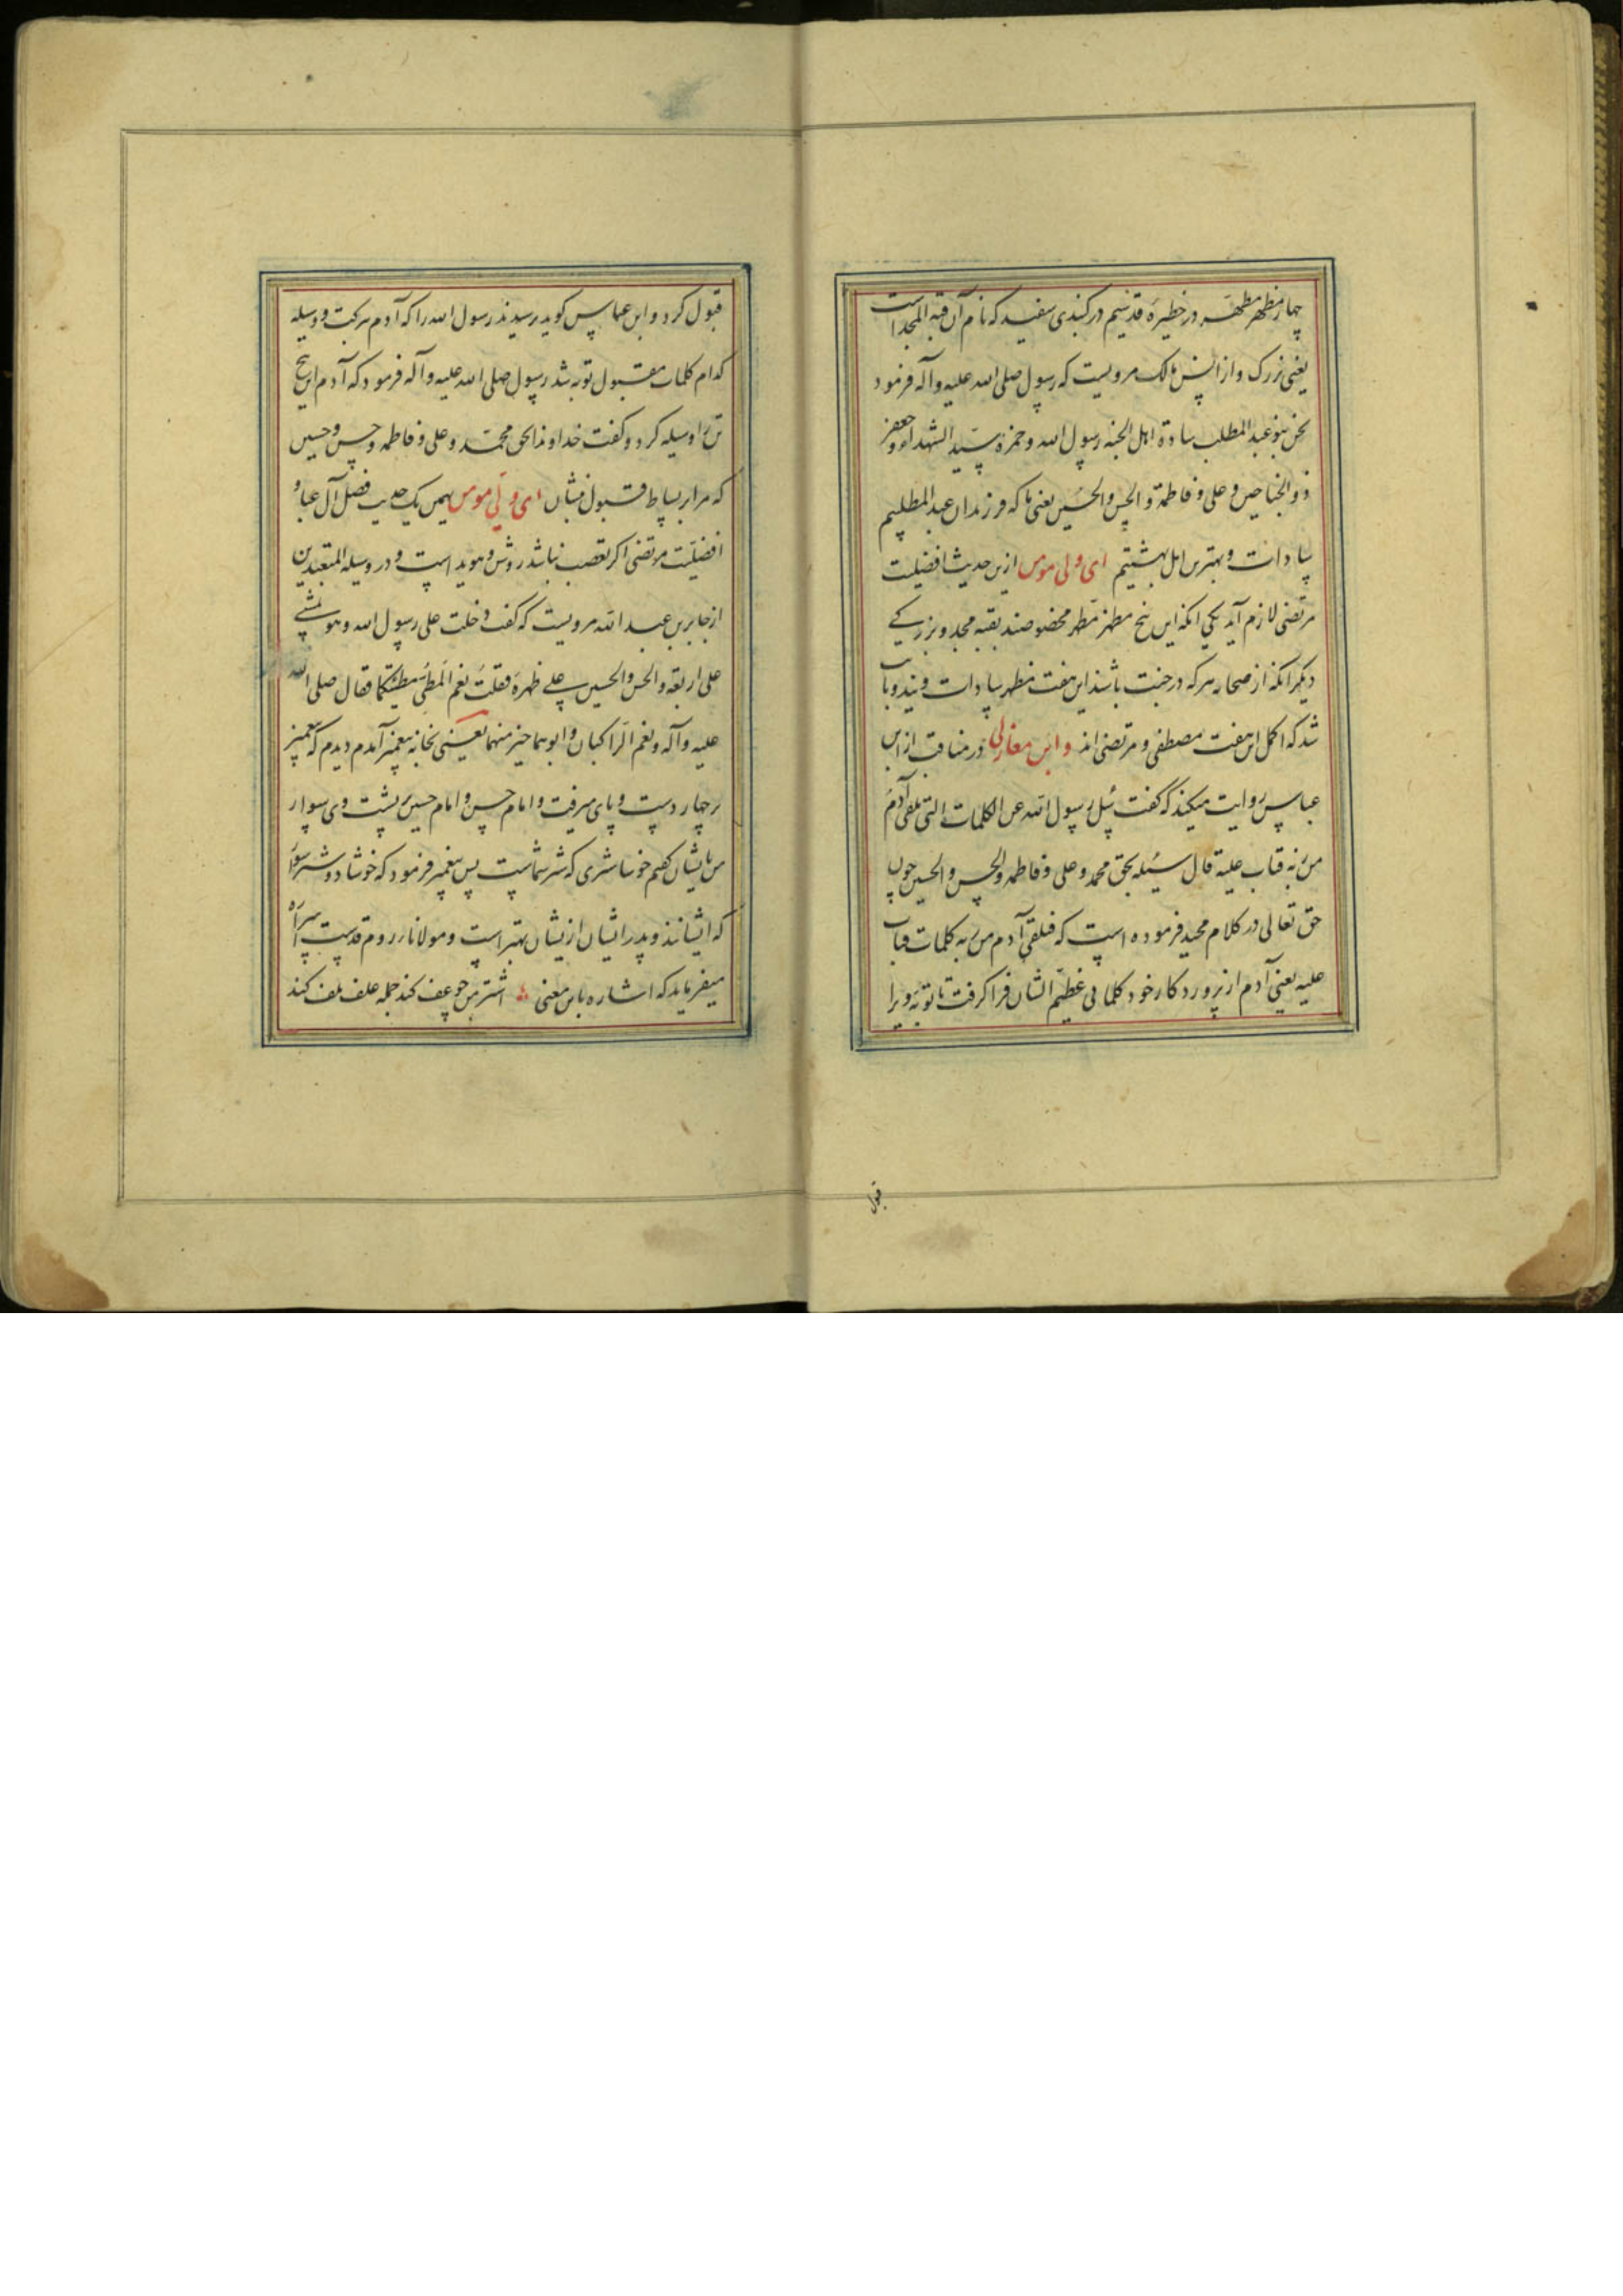 چهار مظهر مطهر در حظیره قدسیم در کنبدی سفید که نام آن قبة المجد است
یعنی بزرک و از انس مالک مرویست که رسول صلی الله علیه و آله فرمود
نحن بنو عبد المطلب سادة اهل الجنه رسول الله و حمزة سید الشهداء و جعفر
ذو الجناحین و علی و فاطمة و الحسن و الحسین یعنی ما که فرزندان عبد المطلبیم
سادات و بهترین اهل بهشتیم ای ولی مومن ازین حدیث افضلیت
مرتضی لازم آید یکی انکه این پنج مظهر مطهر مخصوصند بقبه مجد و بزرکی
دیکر انکه از صحابه هر که در جنت باشند این هفت مظهر سادات ویند و
شد که اکمل این هفت مصطفی و مرتضی اند و ابن مغازلی در مناقب از ابن
عباس روایت میکند که کفت سئل رسول الله عن الکلمات التی تلقی آدم
من ربه فتاب علیه قال سئله بحق محمد و علی و فاطمه و الحسن و الحسین چون
حق تعالی در کلام مجید فرموده است که فتلقی آدم من ربه کلمات فتاب
علیه یعنی آدم از پروردکار خود کلماتی عظیم الشان فرا کرفت تا توبه ویرا
قبول
قبول کرد و ابن عباس کوید پرسیدند رسول الله را که آدم ببرکت و وسیله
کدام کلمات مقبول توبه شد رسول صلی الله علیه و آله فرمود که آدم این پنج
تن را وسیله کرد و کفت خداوندا بحق محمد و علی و فاطمه و حسن و حسین
که مرا بر بساط قبول نشان ای ولی مومن بهمین یک حدیث فضل آل عبا و
افضلیت مرتضی اکر تعصب نباشد روشن و هویدا است و در وسیله المتعبدین
از جابر بن عبد الله مرویست که کفت دخلت علی رسول الله و هو یمشی
علی اربعة و الحسن و الحسین علی ظهره فقلت نعم المطی مطیتکما فقال صلی الله
علیه و آله و نعم الراکبان و ابوهما خیر منهما یعنی بخانه پیغمبر آمدم دیدم که پیغمبر
بر چهار دست و پای میرفت و امام حسن و امام حسین بر پشت وی سوار
من بایشان کفتم خوشا شتری که شتر شماست پس پیغمبر فرمود که خوشا دو شتر سوار
که ایشانند و پدر ایشان ازیشان بهتر است و مولانا روم قدست اسراره
میفرماید که اشاره باین معنی اشتر من چو عف کند جمله علف تلف کند